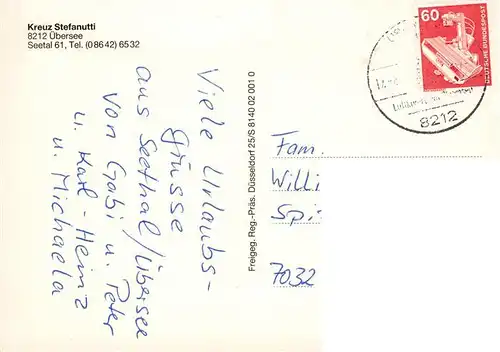 Kreuz Stefanutti
8212 Übersee
Seetal 61, Tel. (0 86 42) 65 32
Viele Urlaubs-
grüsse
aus Seethal/Übersee
von Gabi u. Peter
u. Karl-Heinz
u. Michaela
Freigeg. Reg.-Präs. Düsseldorf 25/S 8140 02 001 0
60
DEUTSCHE BUNDESPOST
8212
Fam.
Willi
Spi
7032